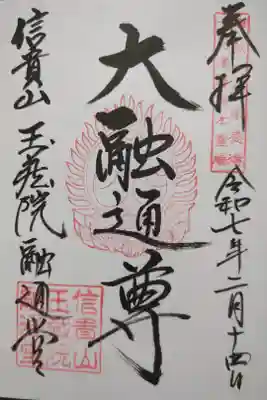 奉拝
令和七年二月十四日
大融通尊
信貴山
玉蔵院融通堂
信貴山
玉蔵院
融通堂